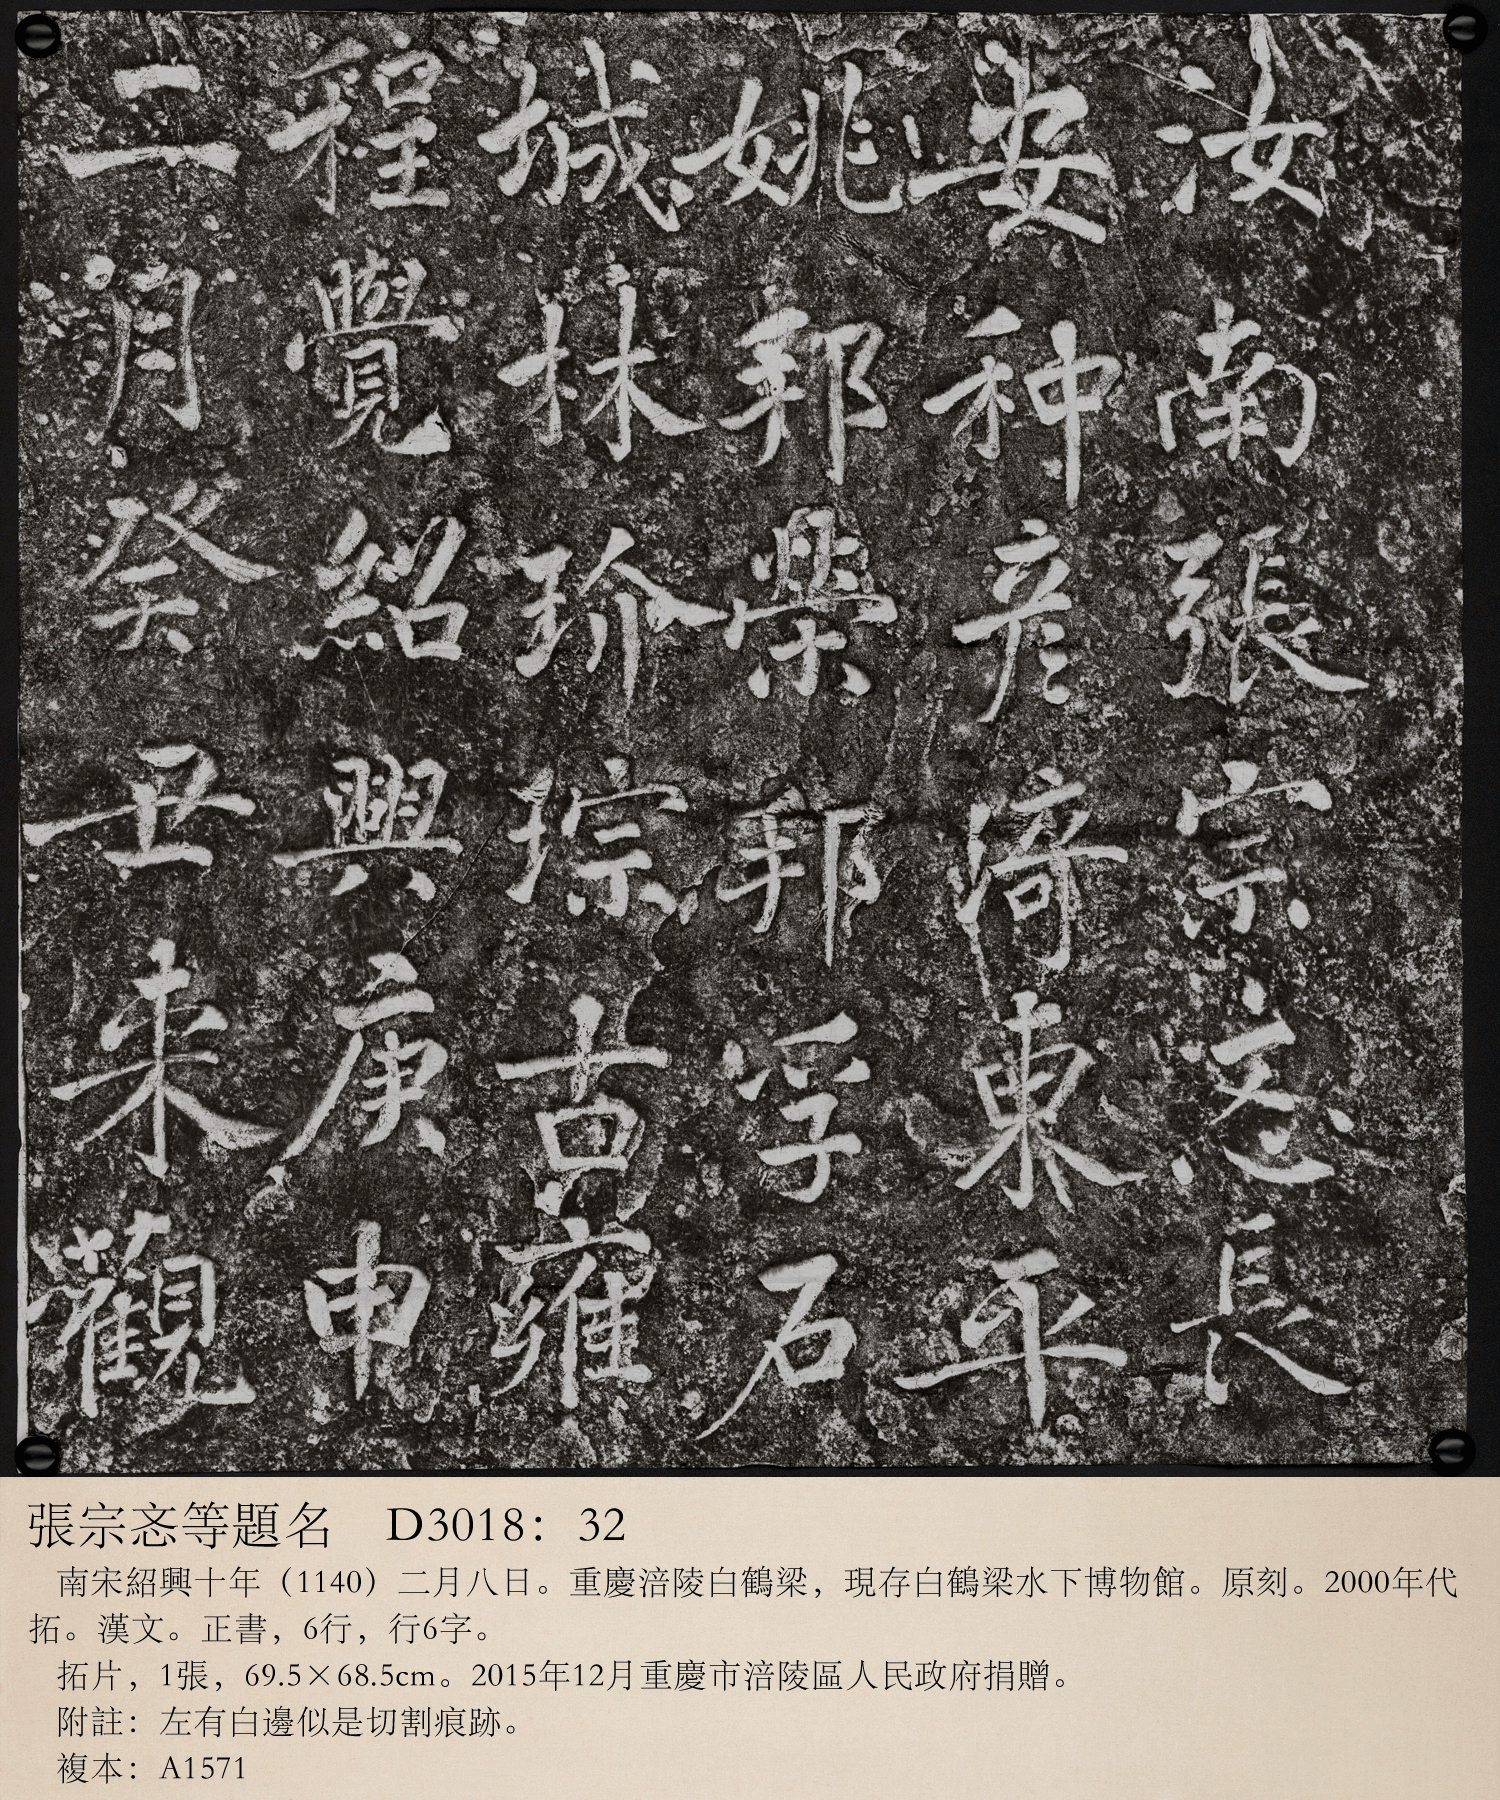 汝南張宗忞長
安种彥琦東平
姚邦榮邦孚石
城林玠琮古雍
程覺紹興庚申
二月癸丑來觀
張宗忞等題名 D3018：32
南宋紹興十年（1140）二月八日。重慶涪陵白鶴梁，現存白鶴梁水下博物館。原刻。2000年代
拓。漢文。正書，6行，行6字。
拓片，1張，69.5×68.5cm。2015年12月重慶市涪陵區人民政府捐贈。
附註：左有白邊似是切割痕跡。
複本：A1571